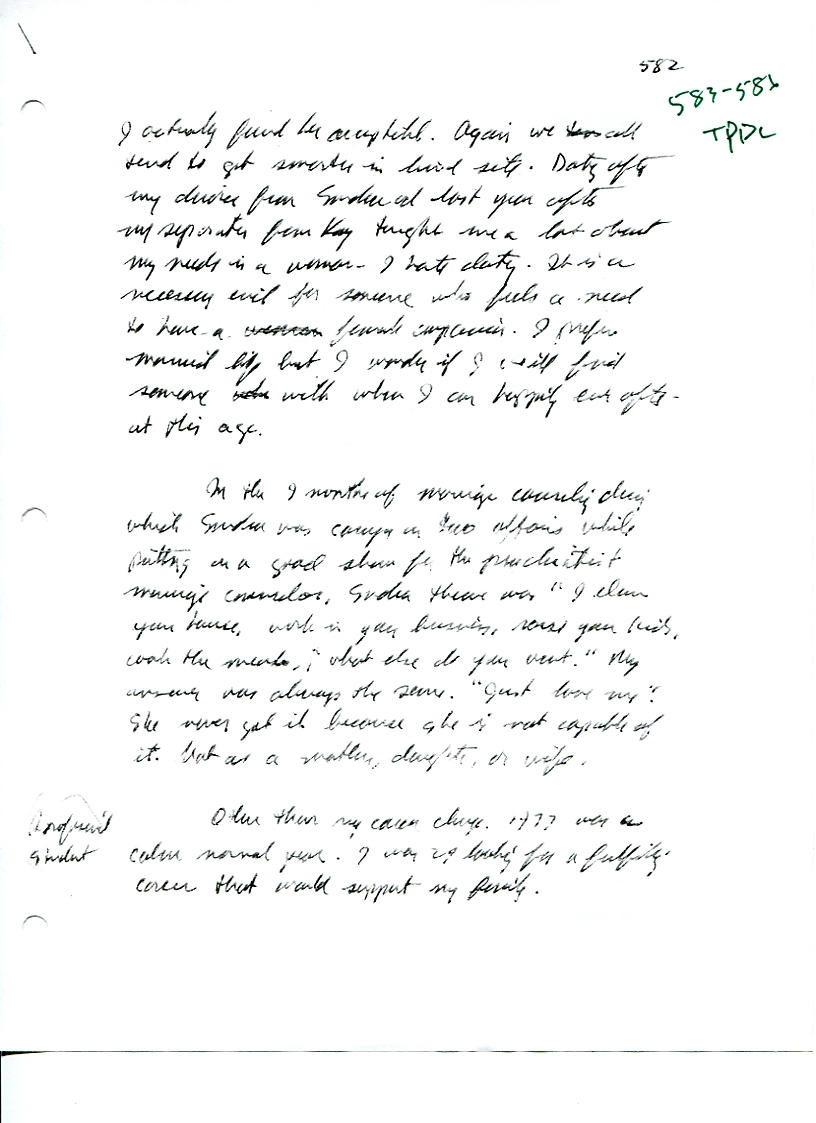 582
583-583
TPDL
I actually found her acceptable. Again we all
tend to get smarter in hind site. Dating after
my divorce from Sondra and last year after
my separation from Kay taught me a lot about
my needs in a woman - I hate dating. It is a
necessary evil for someone who feels a need
to have a woman female companion. I prefer
married life but I wonder if I will find
someone who with whom I can happily ever after -
at this age.
In the 9 months of marriage counseling during
which Sondra was carrying on two affairs while
putting on a good show for the psychiatrist
marriage counselor, Sondra theme was "I clean
your house, work in your business, raise your kids,
cook the meals, what else do you want." My
answer was always the same. "Just love me".
She never got it because she is not capable of
it. Not as a mother, daughter, or wife.
Other than my career change, 1977 was a
student
calm normal year. I was 29 looking for a fulfilling
career that would support my family.